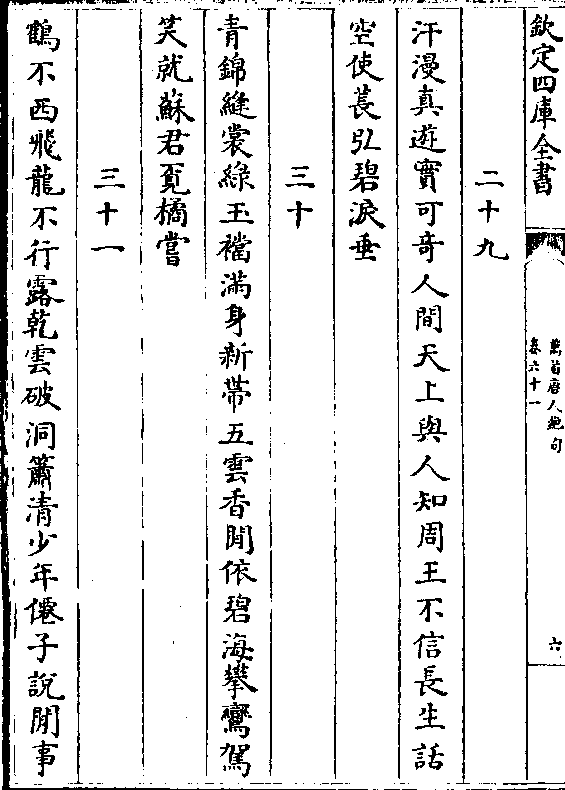 欽定四庫全書
萬首唐人絶句
卷六十一
六
二十九
汗漫真遊實可竒人間天上與人知周王不信長生話
空使萇弘碧淚垂
三十
青錦縫裳綠玉襠滿身新帶五雲香閒依碧海攀鸞駕
笑就蘇君覓橘嘗
三十一
鶴不西飛龍不行露乾雲破洞簫清少年僊子說閒事